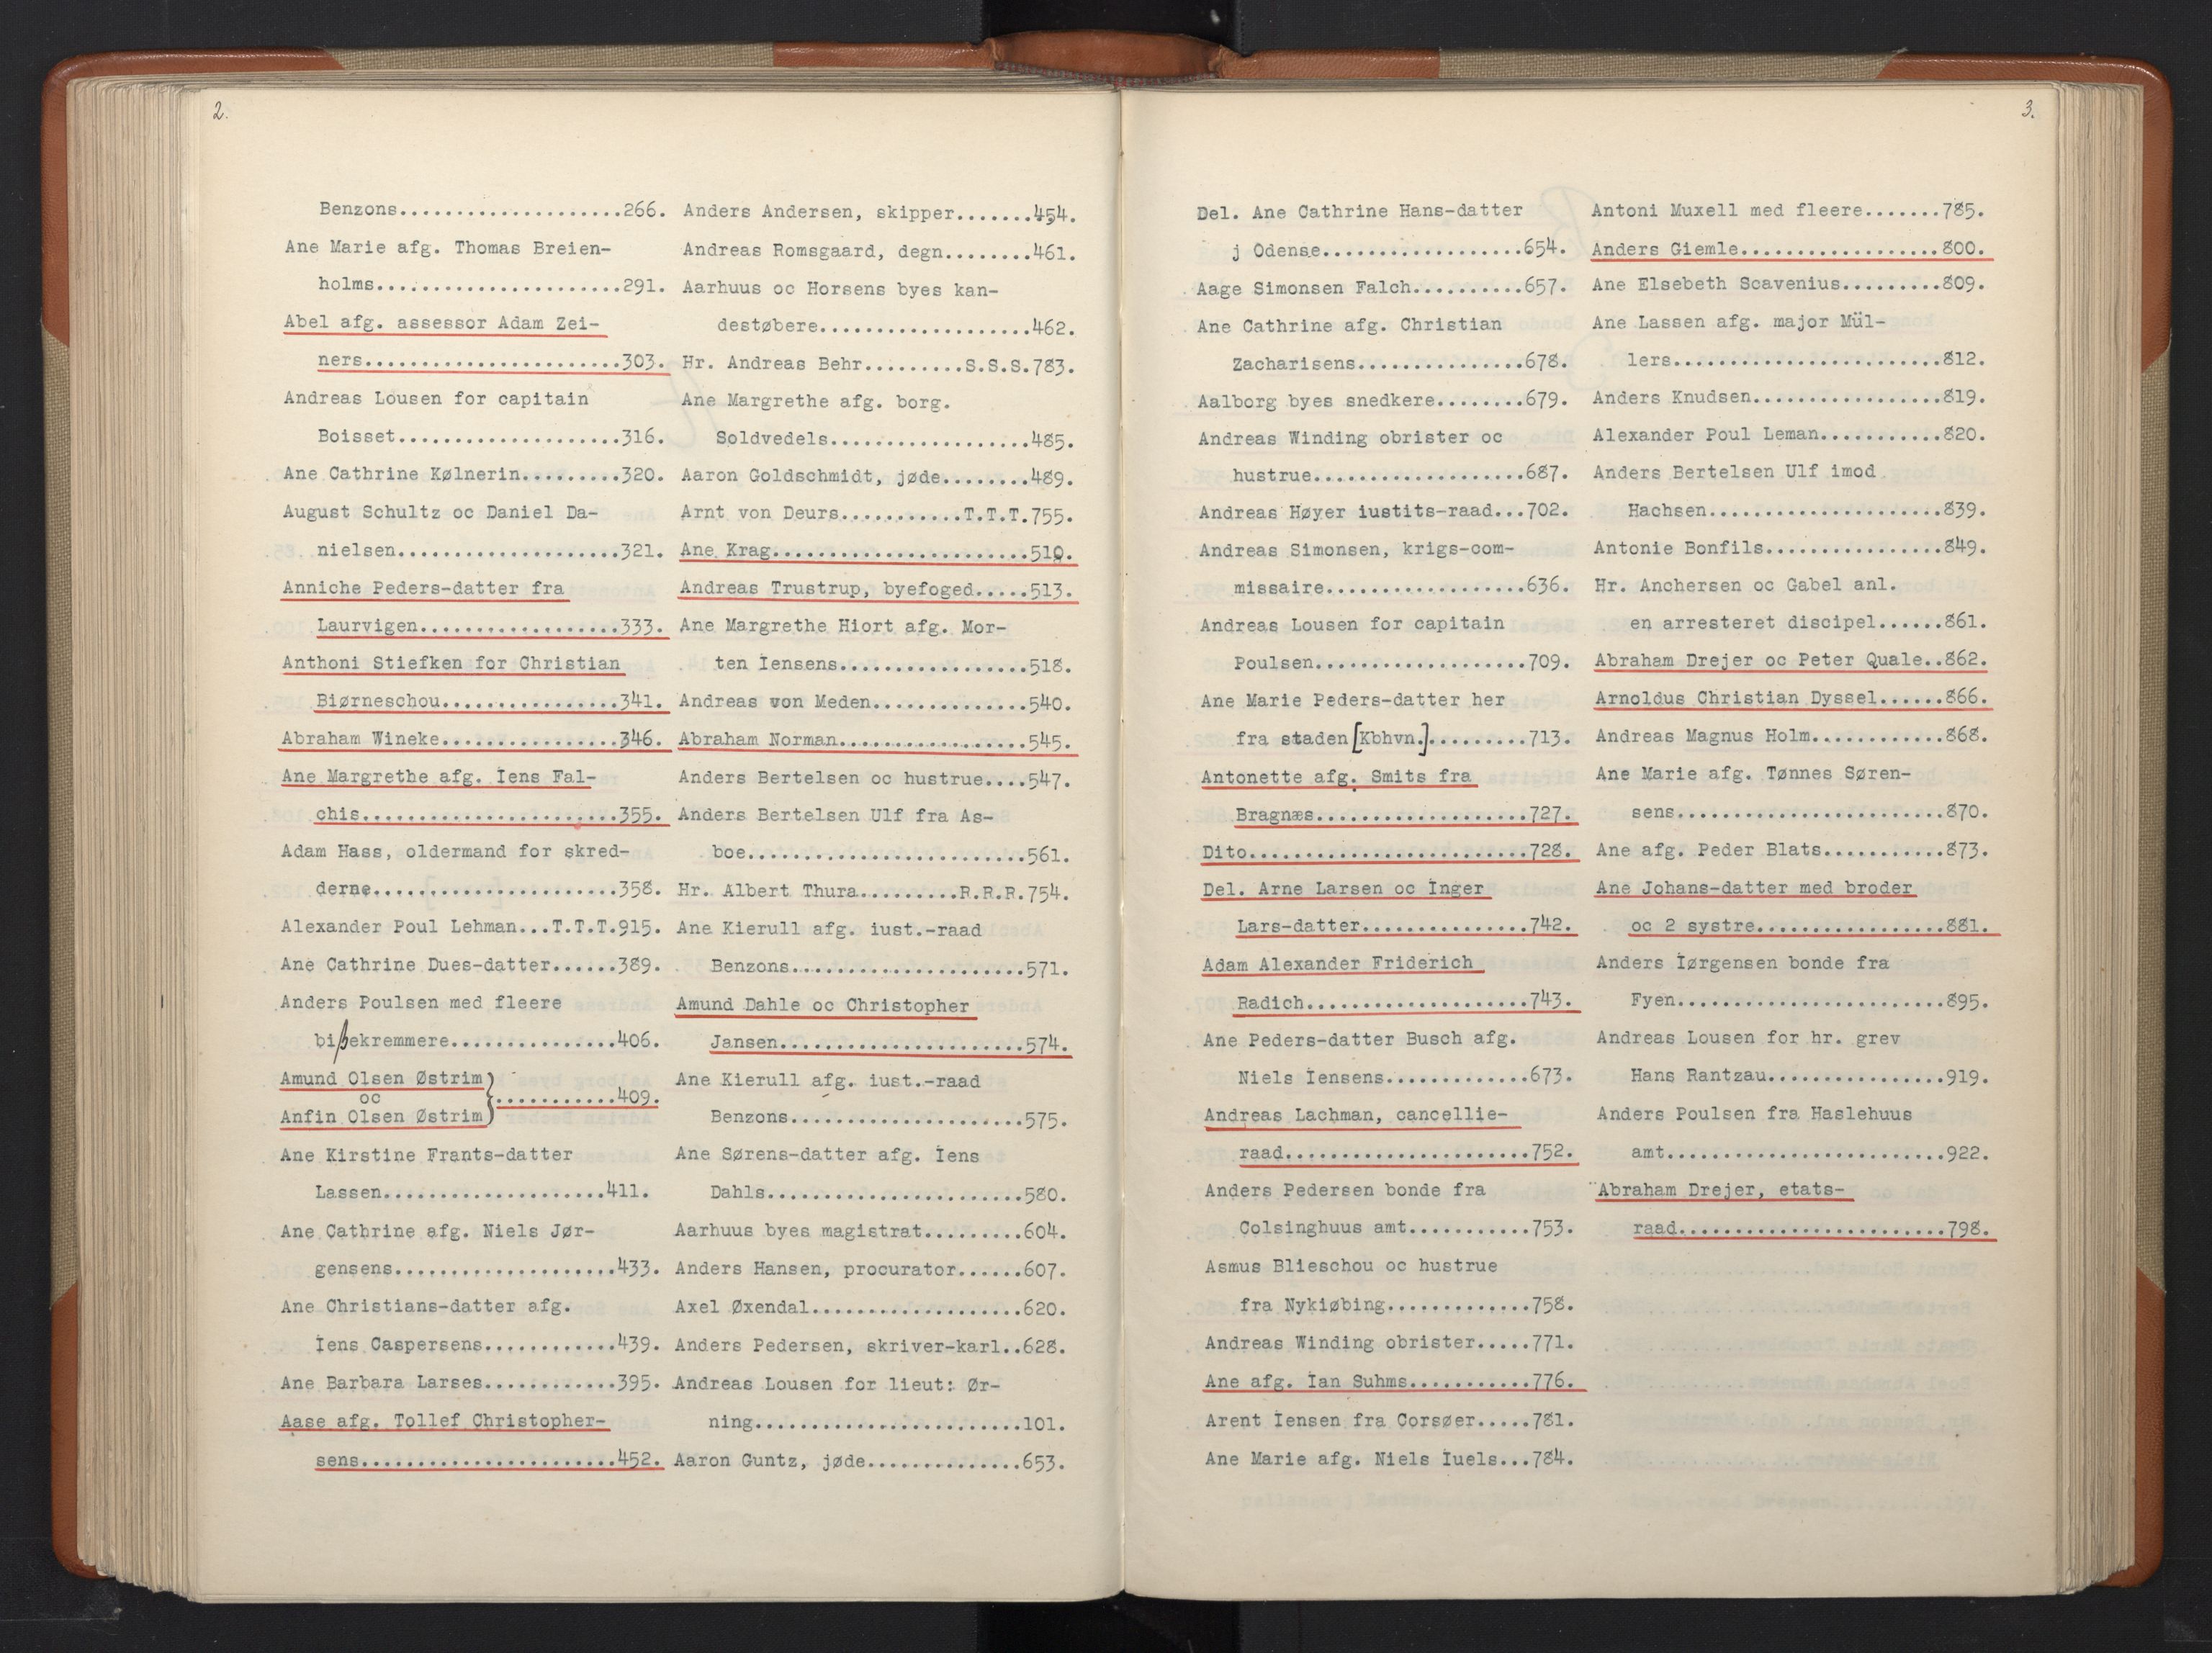 2.
Benzons....................266.
Ane Marie afg. Thomas Breien-
holms......................291.
Abel afg. assessor Adam Zei-
ners.......................303.
Andreas Lousen for capitain
Boisset....................316.
Ane Cathrine Kølnerin.........320.
August Schultz oc Daniel Da-
nielsen....................321.
Anniche Peders-datter fra
Laurvigen..................333.
Anthoni Stiefken for Christian
Biørneschou................341.
Abraham Wineke................346.
Ane Margrethe afg. Iens Fal-
chis.......................355.
Adam Hass, oldermand for skred-
derne......................358.
Alexander Poul Lehman...T.T.T.915.
Ane Cathrine Dues-datter......389.
Anders Poulsen med fleere
bißekremmere...............406.
Amund Olsen Østrim
oc ...........409.
Anfin Olsen Østrim
Ane Kirstine Frants-datter
Lassen....................411.
Ane Cathrine afg. Niels Jør-
gensens....................433.
Ane Christians-datter afg.
Iens Caspersens............439.
Ane Barbara Larses............395.
Aase afg. Tollef Christopher-
sens.......................452.
Anders Andersen, skipper.......454.
Andreas Romsgaard, degn........461.
Aarhuus oc Horsens byes kan-
destøbere...................462.
Hr. Andreas Behr.........S.S.S.783.
Ane Margrethe afg. borg.
Soldvedels..................485.
Aaron Goldschmidt, jøde........489.
Arnt von Deurs...........T.T.T.755.
Ane Krag.......................510.
Andreas Trustrup, byefoged.....513.
Ane Margrethe Hiort afg. Mor-
ten Iensens.................518.
Andreas von Meden..............540.
Abraham Norman.................545.
Anders Bertelsen oc hustrue....547.
Anders Bertelsen Ulf fra As-
boe.........................561.
Hr. Albert Thura.........R.R.R.754.
Ane Kierull afg. iust.-raad
Benzons.....................571.
Amund Dahle oc Christopher
Jansen......................574.
Ane Kierull afg. iust.-raad
Benzons.....................575.
Ane Sørens-datter afg. Iens
Dahls.......................580.
Aarhuus byes magistrat.........604.
Anders Hansen, procurator......607.
Axel Øxendal...................620.
Anders Pedersen, skriver-karl..628.
Andreas Lousen for lieut: Ør-
ning........................101.
Aaron Guntz, jøde..............653.
3.
Del. Ane Cathrine Hans-datter
j Odense..................654.
Aage Simonsen Falch..........657.
Ane Cathrine afg. Christian
Zacharisens...............678.
Aalborg byes snedkere........679.
Andreas Winding obrister oc
hustrue...................687.
Andreas Høyer iustits-raad...702.
Andreas Simonsen, krigs-com-
missaire..................636.
Andreas Lousen for capitain
Poulsen...................709.
Ane Marie Peders-datter her
fra staden[Kbhvn.].........713.
Antonette afg. Smits fra
Bragnæs...................727.
Dito.........................728.
Del. Arne Larsen oc Inger
Lars-datter...............742.
Adam Alexander Friderich
Radich....................743.
Ane Peders-datter Busch afg.
Niels Iensens.............673.
Andreas Lachman, cancellie-
raad......................752.
Anders Pedersen bonde fra
Colsinghuus amt...........753.
Asmus Blieschou oc hustrue
fra Nykiøbing.............758.
Andreas Winding obrister.....771.
Ane afg. Ian Suhms...........776.
Arent Iensen fra Corsøer.....781.
Ane Marie afg. Niels Iuels...784.
Antoni Muxell med fleere.......785.
Anders Giemle..................800.
Ane Elsebeth Scavenius.........809.
Ane Lassen afg. major Mül-
lers........................812.
Anders Knudsen.................819.
Alexander Poul Leman...........820.
Anders Bertelsen Ulf imod
Hachsen.....................839.
Antonie Bonfils................849.
Hr. Anchersen oc Gabel anl.
en arresteret discipel......861.
Abraham Drejer oc Peter Quale..862.
Arnoldus Christian Dyssel......866.
Andreas Magnus Holm............868.
Ane Marie afg. Tønnes Søren-
sens........................870.
Ane afg. Peder Blats...........873.
Ane Johans-datter med broder
oc 2 systre.................881.
Anders Iørgensen bonde fra
Fyen........................895.
Andreas Lousen for hr. grev
Hans Rantzau................919.
Anders Poulsen fra Haslehuus
amt.........................922.
Abraham Drejer, etats-
raad........................798.